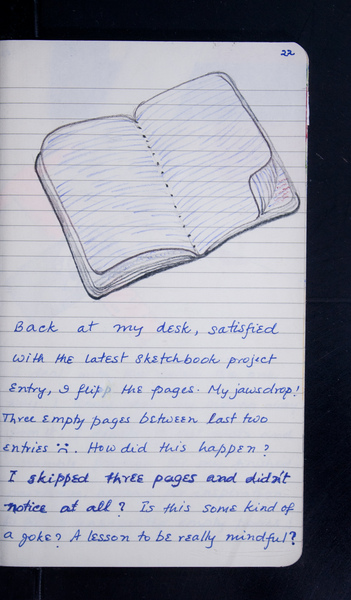 22
Back at my desk, satisfied
with the latest sketchbook project
entry, I flip the pages. My jawsdrop!
Three empty pages between last two
entries :(. How did this happen?
I skipped three pages and didn't
notice at all? Is this some kind of
a joke? A lesson to be really mindful?